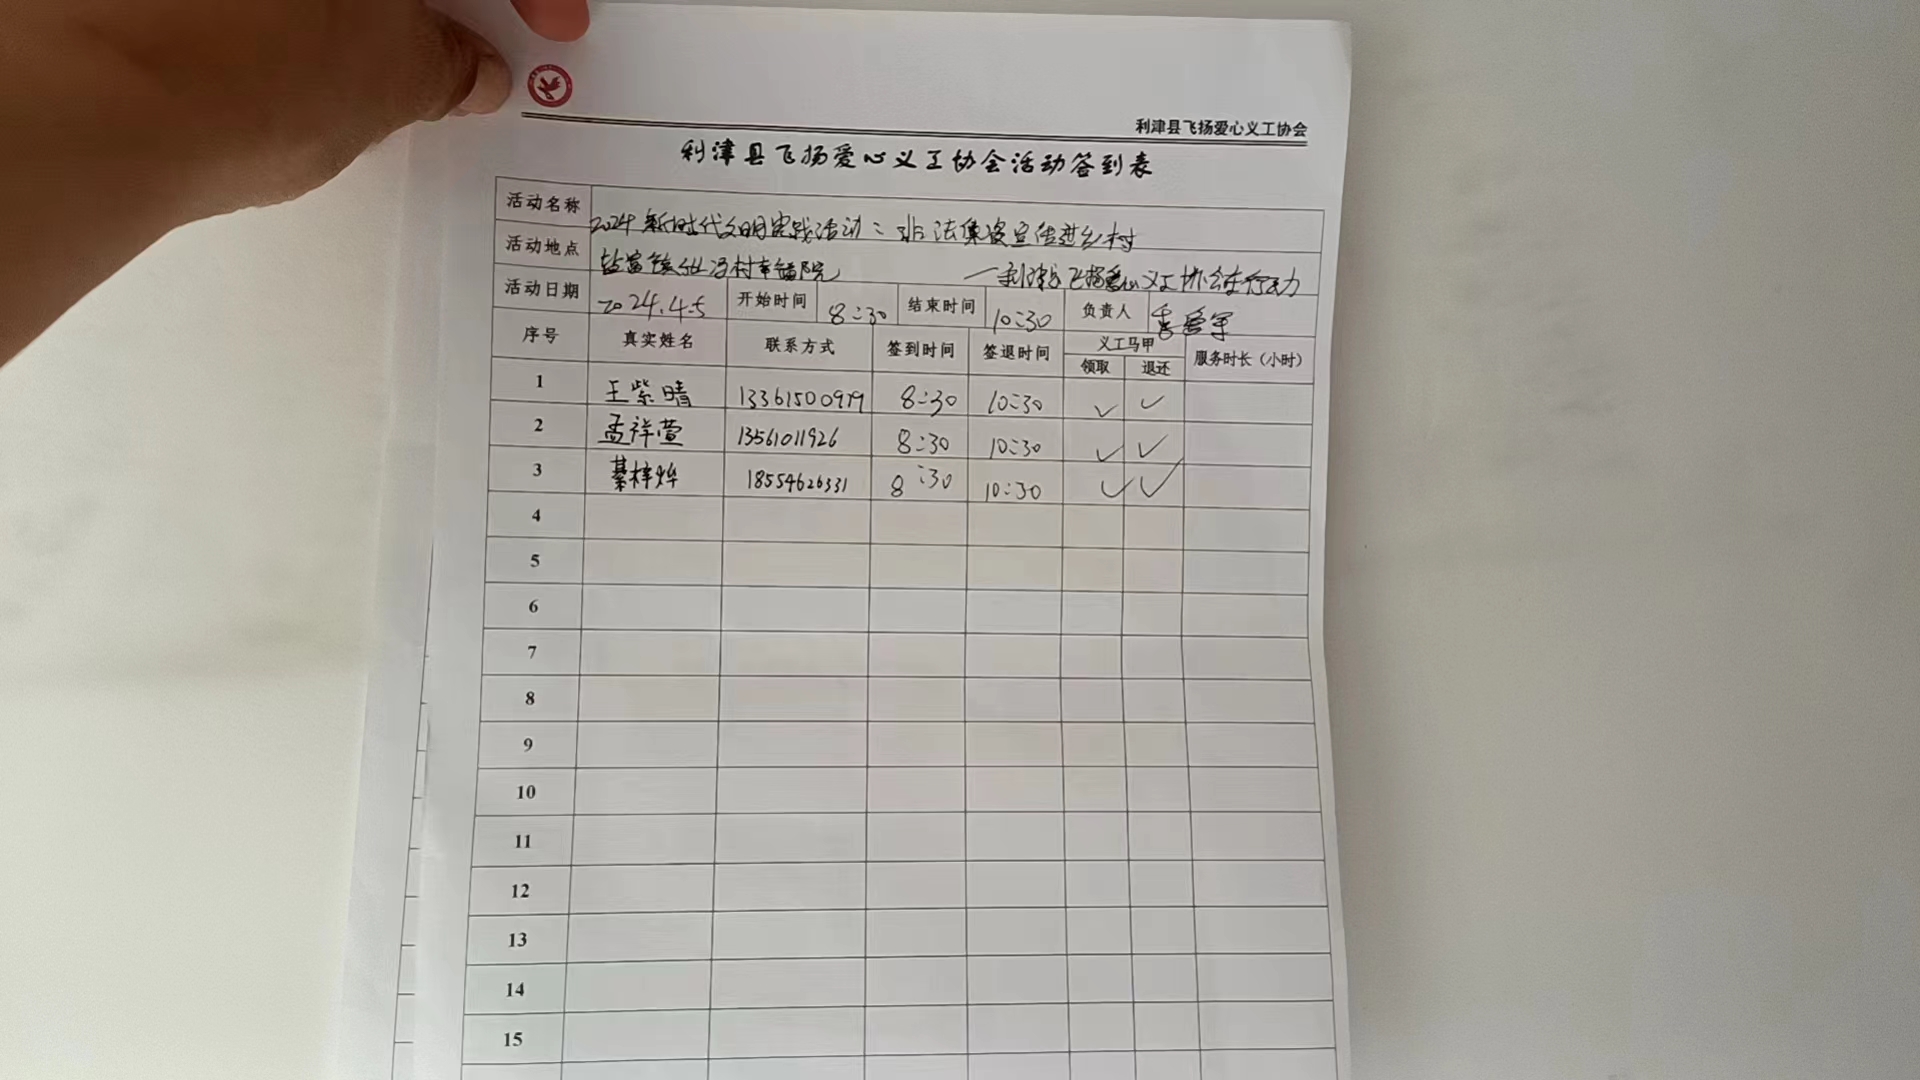 利津县飞扬爱心义工协会
利津县飞扬爱心义工协会活动签到表
活动名称 2024新时代文明实践活动:非法集资宣传进乡村
活动地点 盐窝镇仙冯村幸福院 —利津县飞扬爱心义工协会在行动
活动日期 2024.4.5 开始时间 8:30 结束时间 10:30 负责人
序号 真实姓名 联系方式 签到时间 签退时间 义工马甲 服务时长(小时)
领取 退还
1 王紫晴 13361500979 8:30 10:30 ✓ ✓
2 孟祥萱 13561011926 8:30 10:30 ✓ ✓
3 綦梓烨 18554626331 8:30 10:30 ✓ ✓
4
5
6
7
8
9
10
11
12
13
14
15